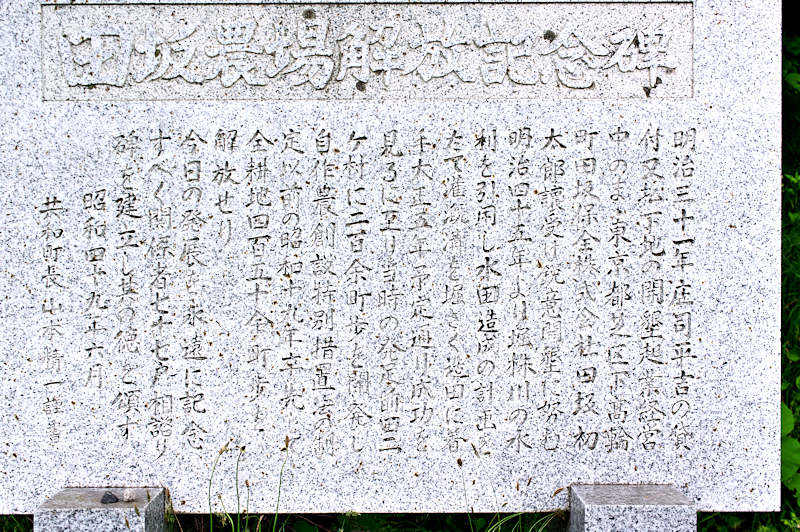 田坂農場解放記念碑
明治三十一年庄司平吉の貸
付又払下地の開墾起業経営
中のまゝ東京都芝区下高輪
町田坂保全株式会社田坂初
太郎譲受け鋭意開墾に努む
明治四十五年より堀株川の水
利を引用し水田造成の計画を
たて灌漑溝を堀さく造田に着
手大正五年予定通り成功を
見るに至り当時の発足前田二
ケ村に二百余町歩を開発し
自作農創設特別措置法の制
定以前の昭和十九年卒先して
全耕地四百五十余町歩を
解放せり
今日の発展を永遠に記念
すべく関係者七十七戸相諮り
碑を建立し其の徳を頌す
昭和四十九年六月
共和町長 山本精一謹書